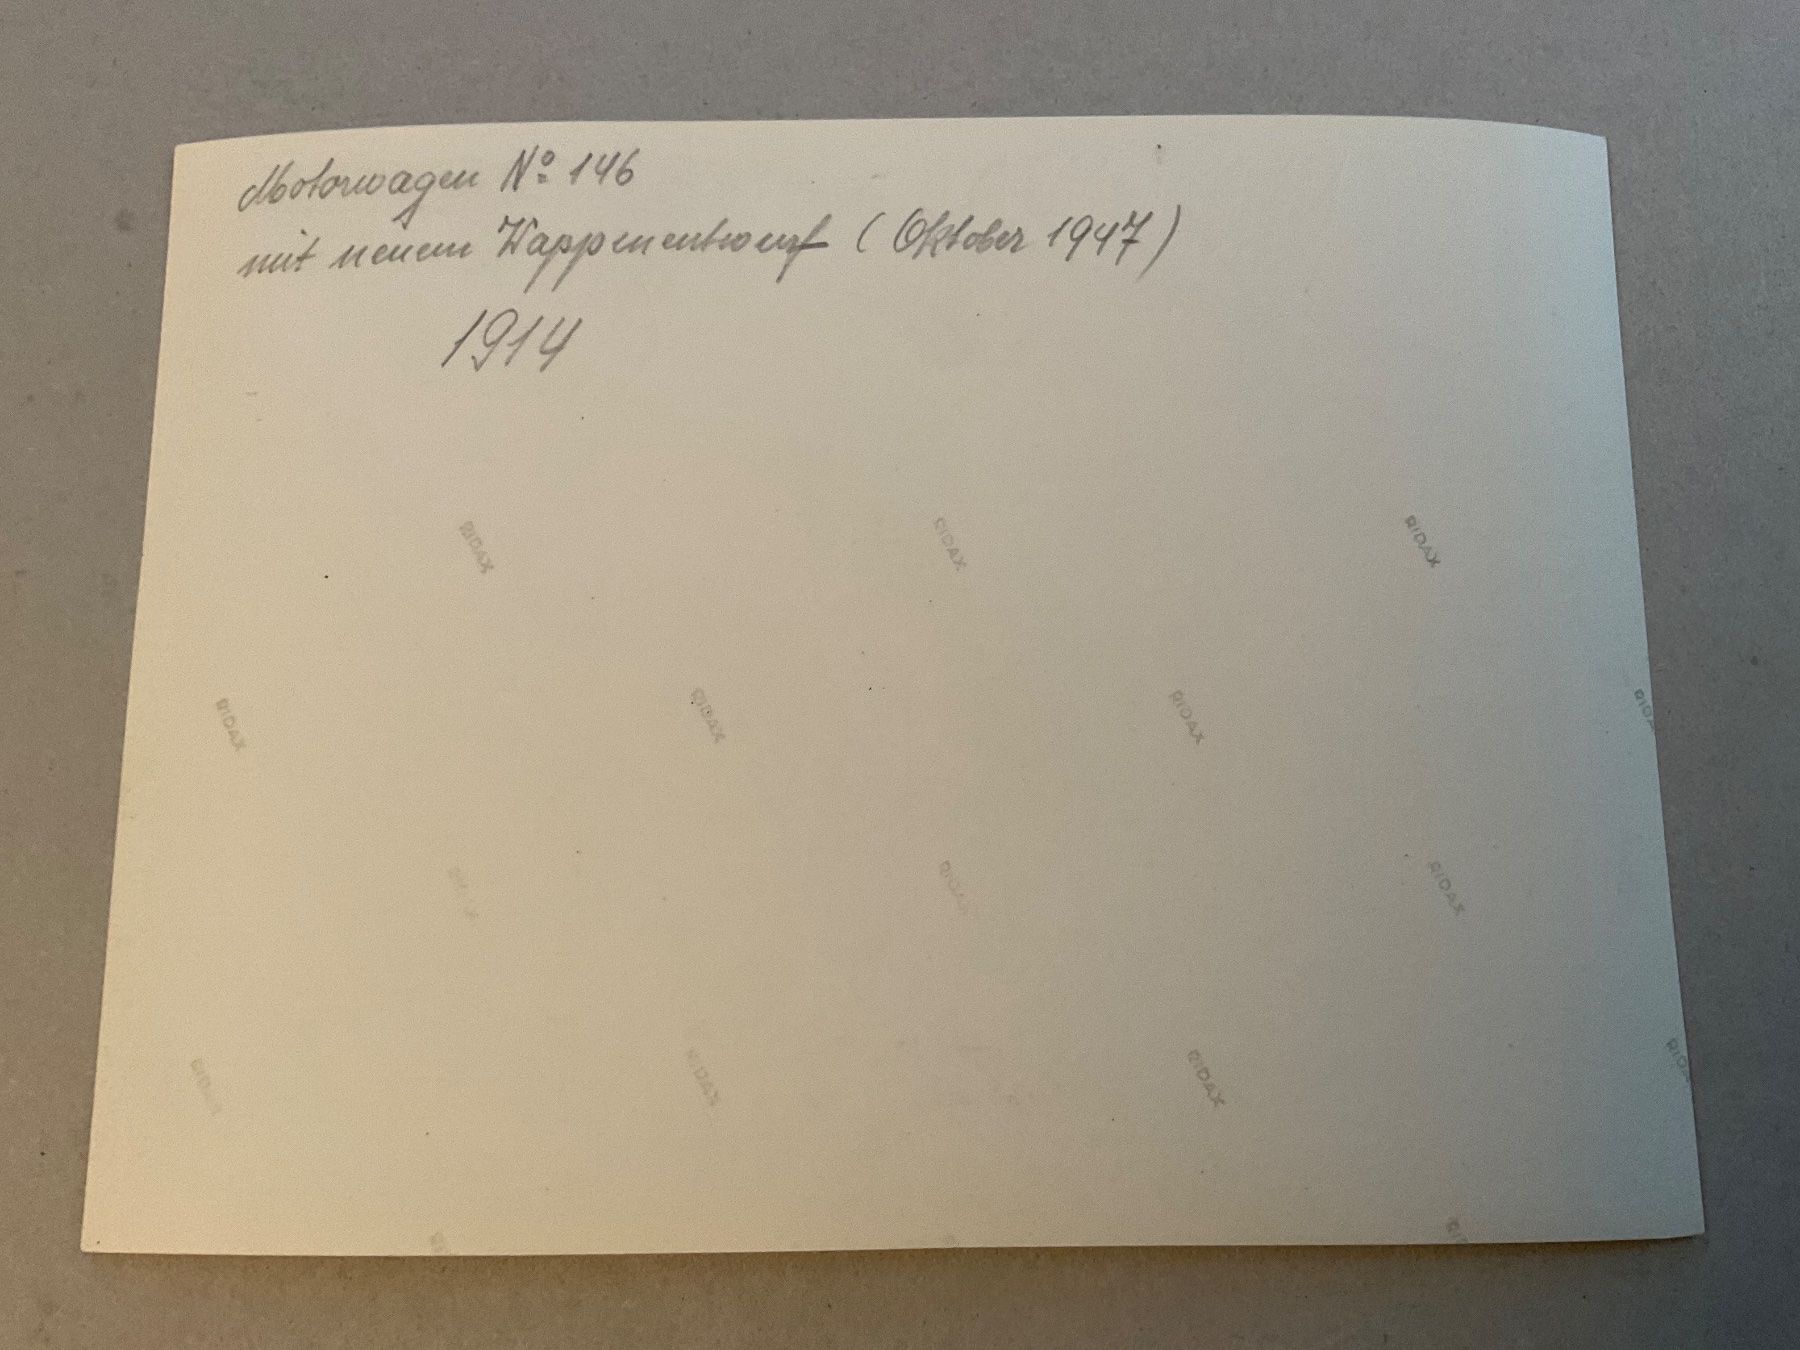 Motorwagen No 146
mit neuem Wappenentwurf (Oktober 1947)
1914
RIDAX RIDAX RIDAX
RIDAX RIDAX RIDAX RIDA
RIDAX RIDAX
RIDAX RIDAX RIDAX RIDA